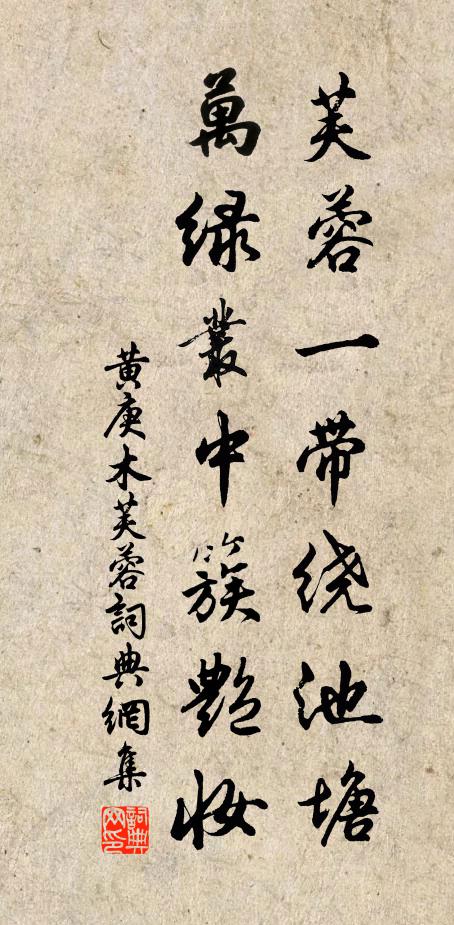 芙蓉一带绕池塘
萬绿叢中簇艶妆
黄庚木芙蓉詞典網集
詞典
网印